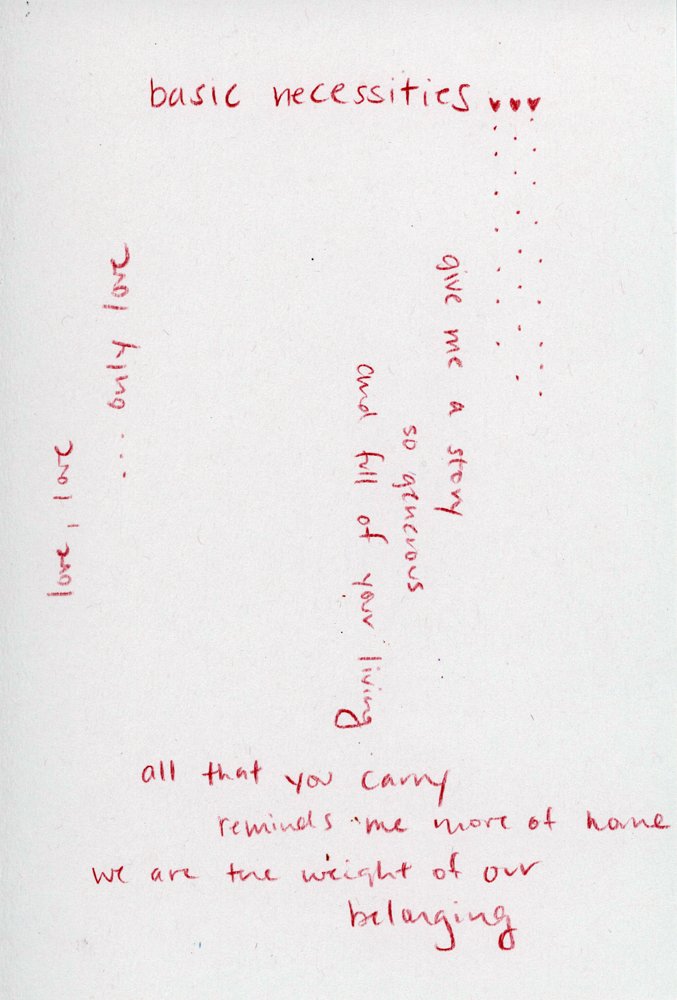 basic necessities ♥♥♥
give me a story
so generous
and full of your living
love, love
... only love
all that you carry
reminds me more of home
we are the weight of our
belonging